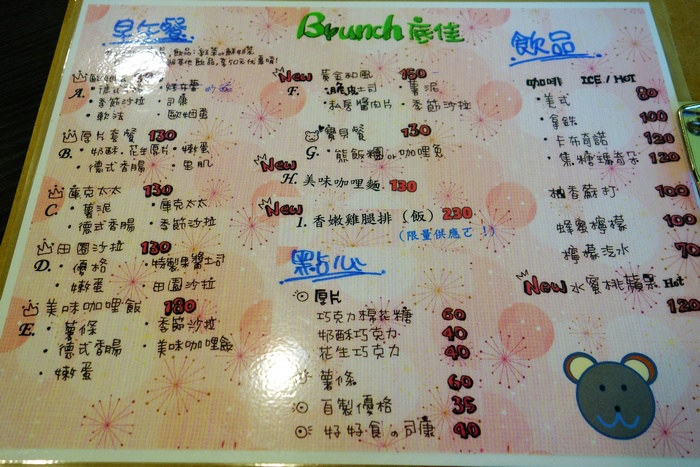 Brunch 窩佳
早午餐
A.
・季節沙拉 ・司康
・軟法 ・歐姆蛋
厚片套餐 130
B. ・奶酥.花生厚片 ・嫩蛋
・德式香腸 ・里肌
庫克太太 130
C. ・薯泥 ・庫克太太
・德式香腸 ・季節沙拉
田園沙拉 130
D. ・優格 ・特製果醬土司
・嫩蛋 ・田園沙拉
美味咖哩飯 180
E. ・薯條 ・季節沙拉
・德式香腸 ・美味咖哩飯
・嫩蛋
New 黃金和風 150
F. ・脆皮土司 ・薯泥
・私房醬肉片 ・季節沙拉
寶貝餐 130
G. ・熊飯糰 or 咖哩魚
New
H. 美味咖哩麵 130
New
I. 香嫩雞腿排 (飯) 230
(限量供應ㄛ!)
點心
厚片
巧克力棉花糖 60
奶酥巧克力 40
花生巧克力 40
薯條 60
自製優格 35
好好食の司康 40
飲品
咖啡 ICE / HOT
・美式 80
・拿鐵 100
・卡布奇諾 120
・焦糖瑪奇朵 120
桔香蘇打 100
蜂蜜檸檬 100
檸檬汽水 70
New 水蜜桃蘋果 Hot
120